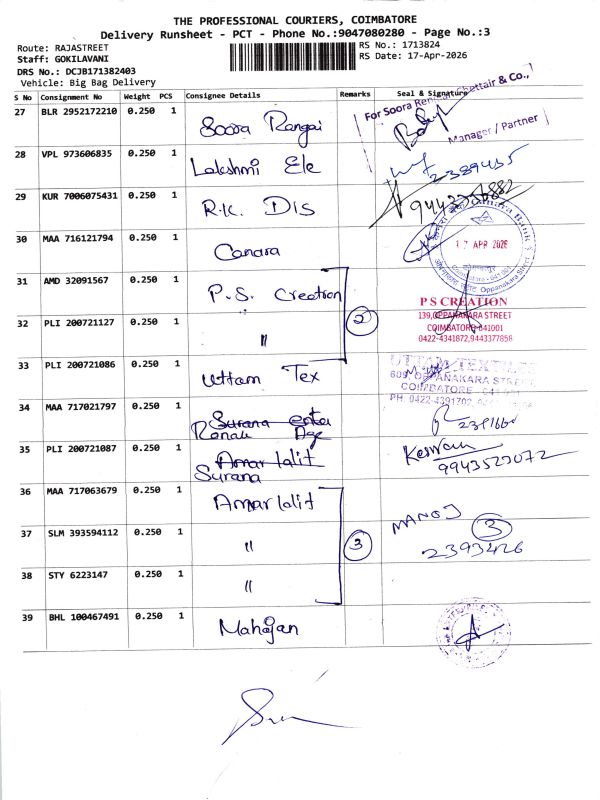 THE PROFESSIONAL COURIERS, COIMBATORE
Delivery Runsheet - PCT - Phone No.:9047080280 - Page No.:3
Route: RAJASTREET
RS No.: 1713824
Staff: GOKILAVANI
RS Date: 17-Apr-2026
DRS No.: DCJB171382403
Vehicle: Big Bag Delivery
S No Consignment No Weight PCS Consignee Details Remarks Seal & Signature
27 BLR 2952172210 0.250 1 Soora Rengai
For Soora Chettair & Co.,
Manager / Partner
28 VPL 973606835 0.250 1 Lakshmi Ele
29 KUR 7006075431 0.250 1 R.K. DIS
30 MAA 716121794 0.250 1 Canara
17 APR 2026
Oppanakara Street
31 AMD 32091567 0.250 1 P.S. Creation
32 PLI 200721127 0.250 1 " 2
P S CREATION
139,OPPANAKARA STREET
COIMBATORE-641001
0422-4341872,9443377858
33 PLI 200721086 0.250 1 Uttam Tex
UTTAM TEXTILES
609, OPPANAKARA STREET
COIMBATORE
PH: 0422-4391702,
34 MAA 717021797 0.250 1 Surana enter
Renali Age
35 PLI 200721087 0.250 1 Amar lalit
Surana
9943523072
36 MAA 717063679 0.250 1 Amar lalit
37 SLM 393594112 0.250 1 " 3
MANOJ 3
2393426
38 STY 6223147 0.250 1 "
39 BHL 100467491 0.250 1 Mahajan